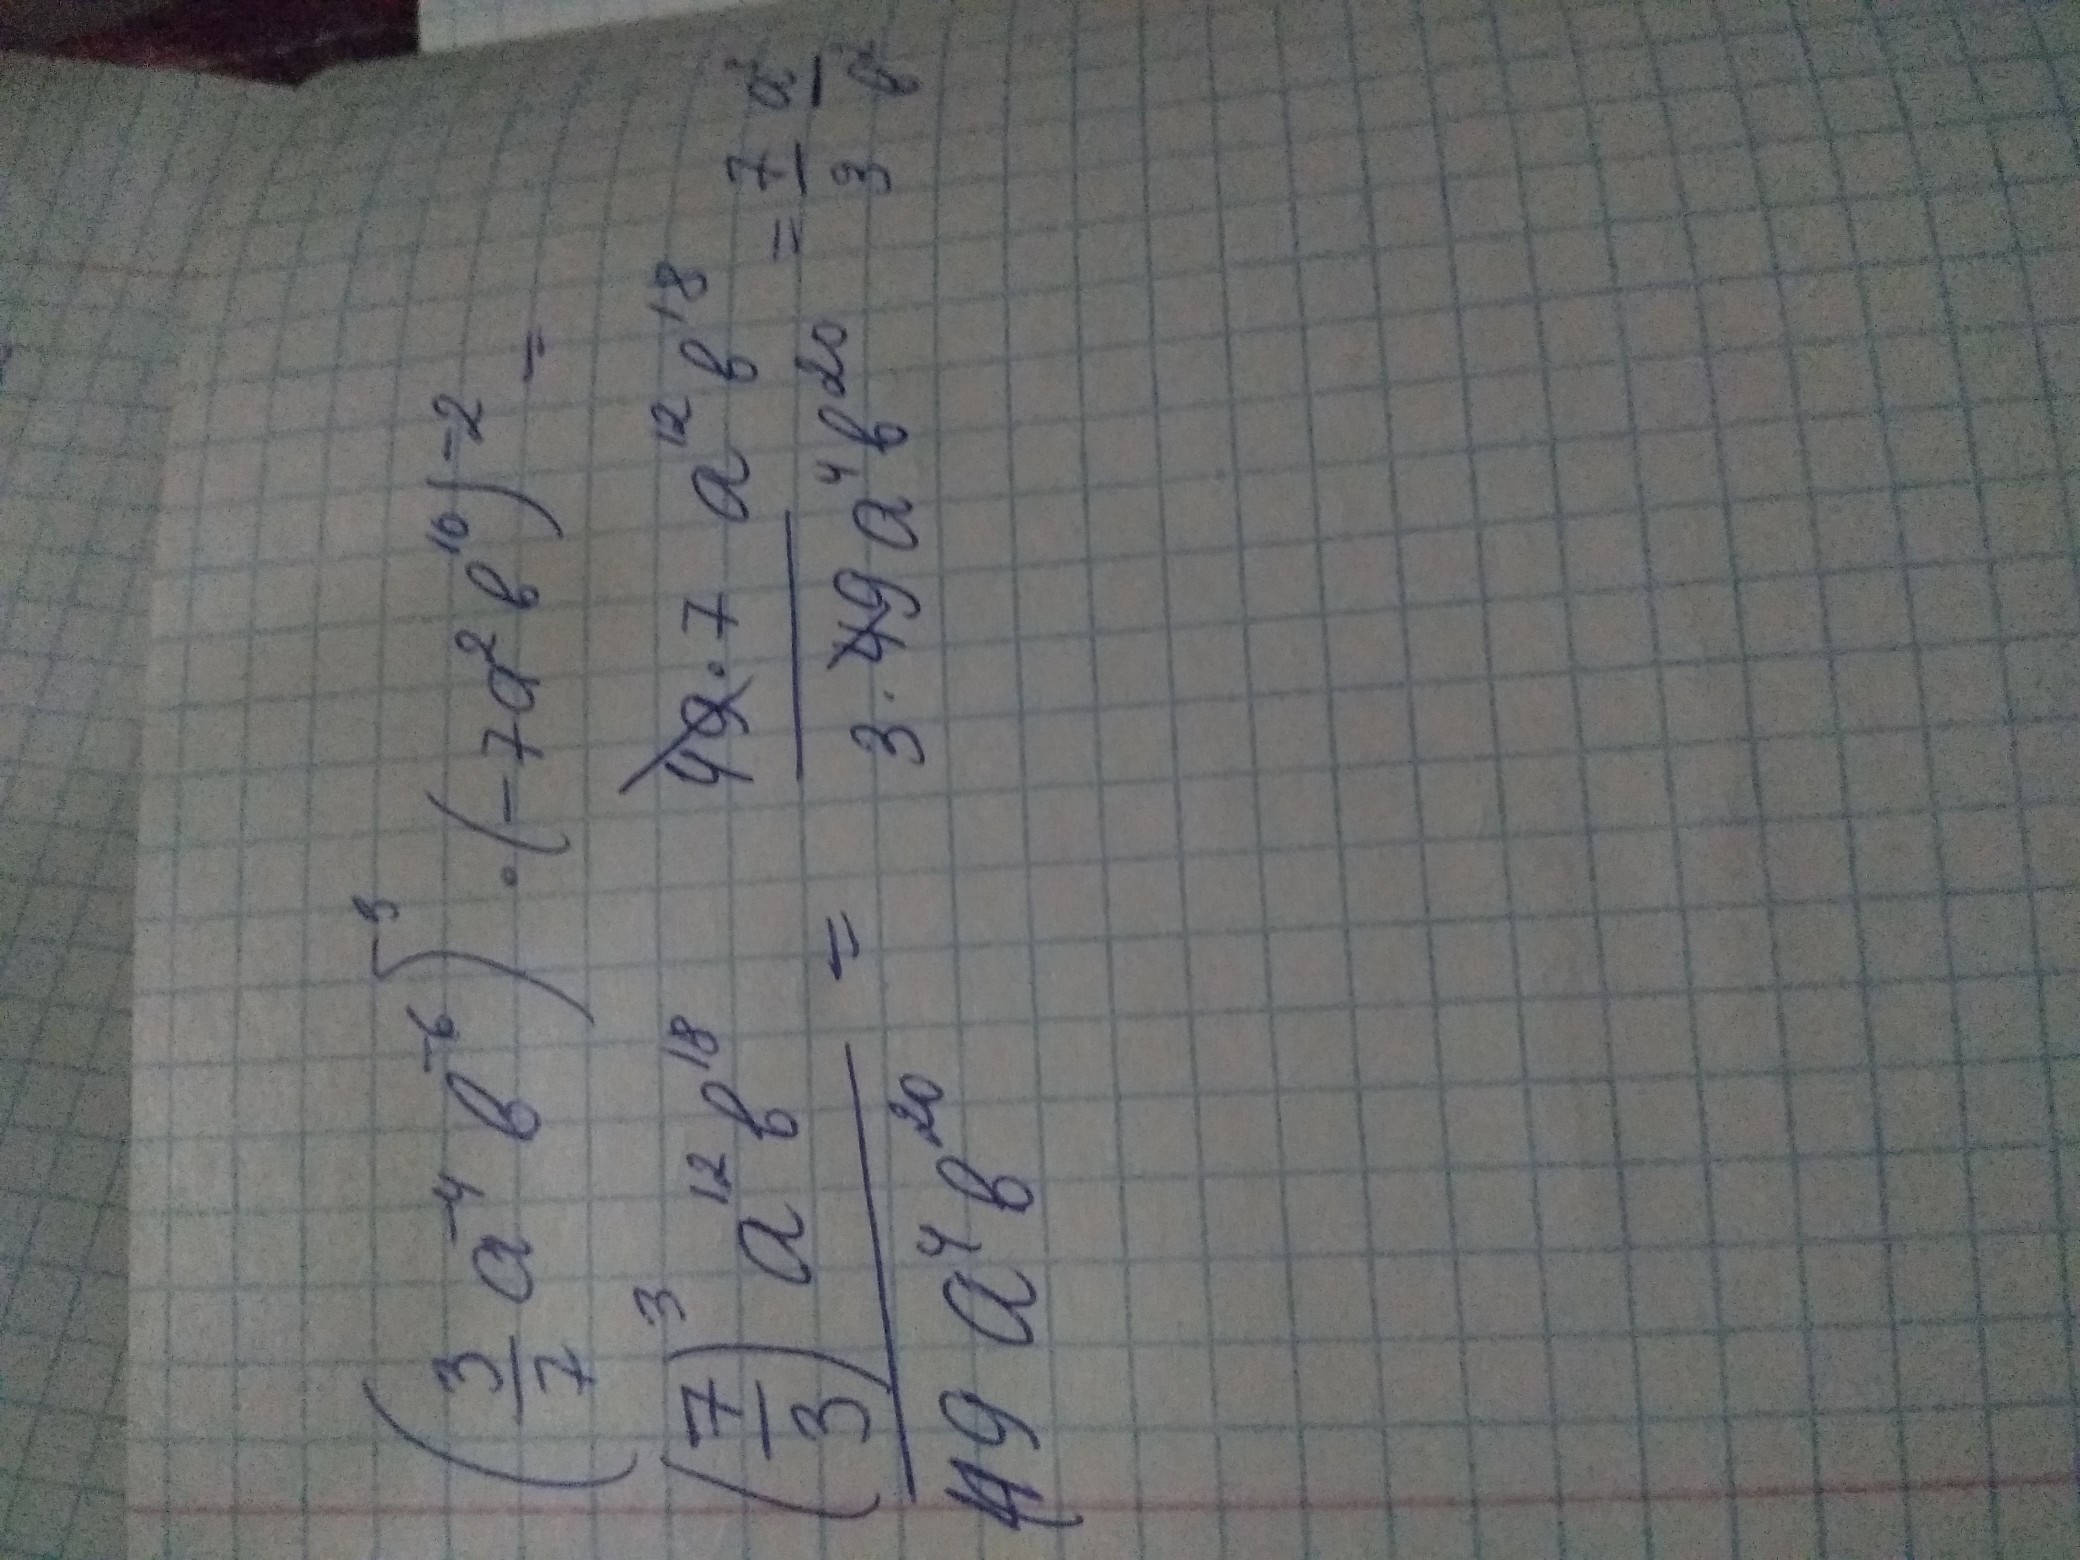 (3/7 a^-4 b^-6)^-3 · (-7a^2 b^10)^-2 =
(7/3)^3 a^12 b^18 / 49 a^4 b^20 = 49·7 a^12 b^18 / 3·49 a^4 b^20 = 7/3 a/b